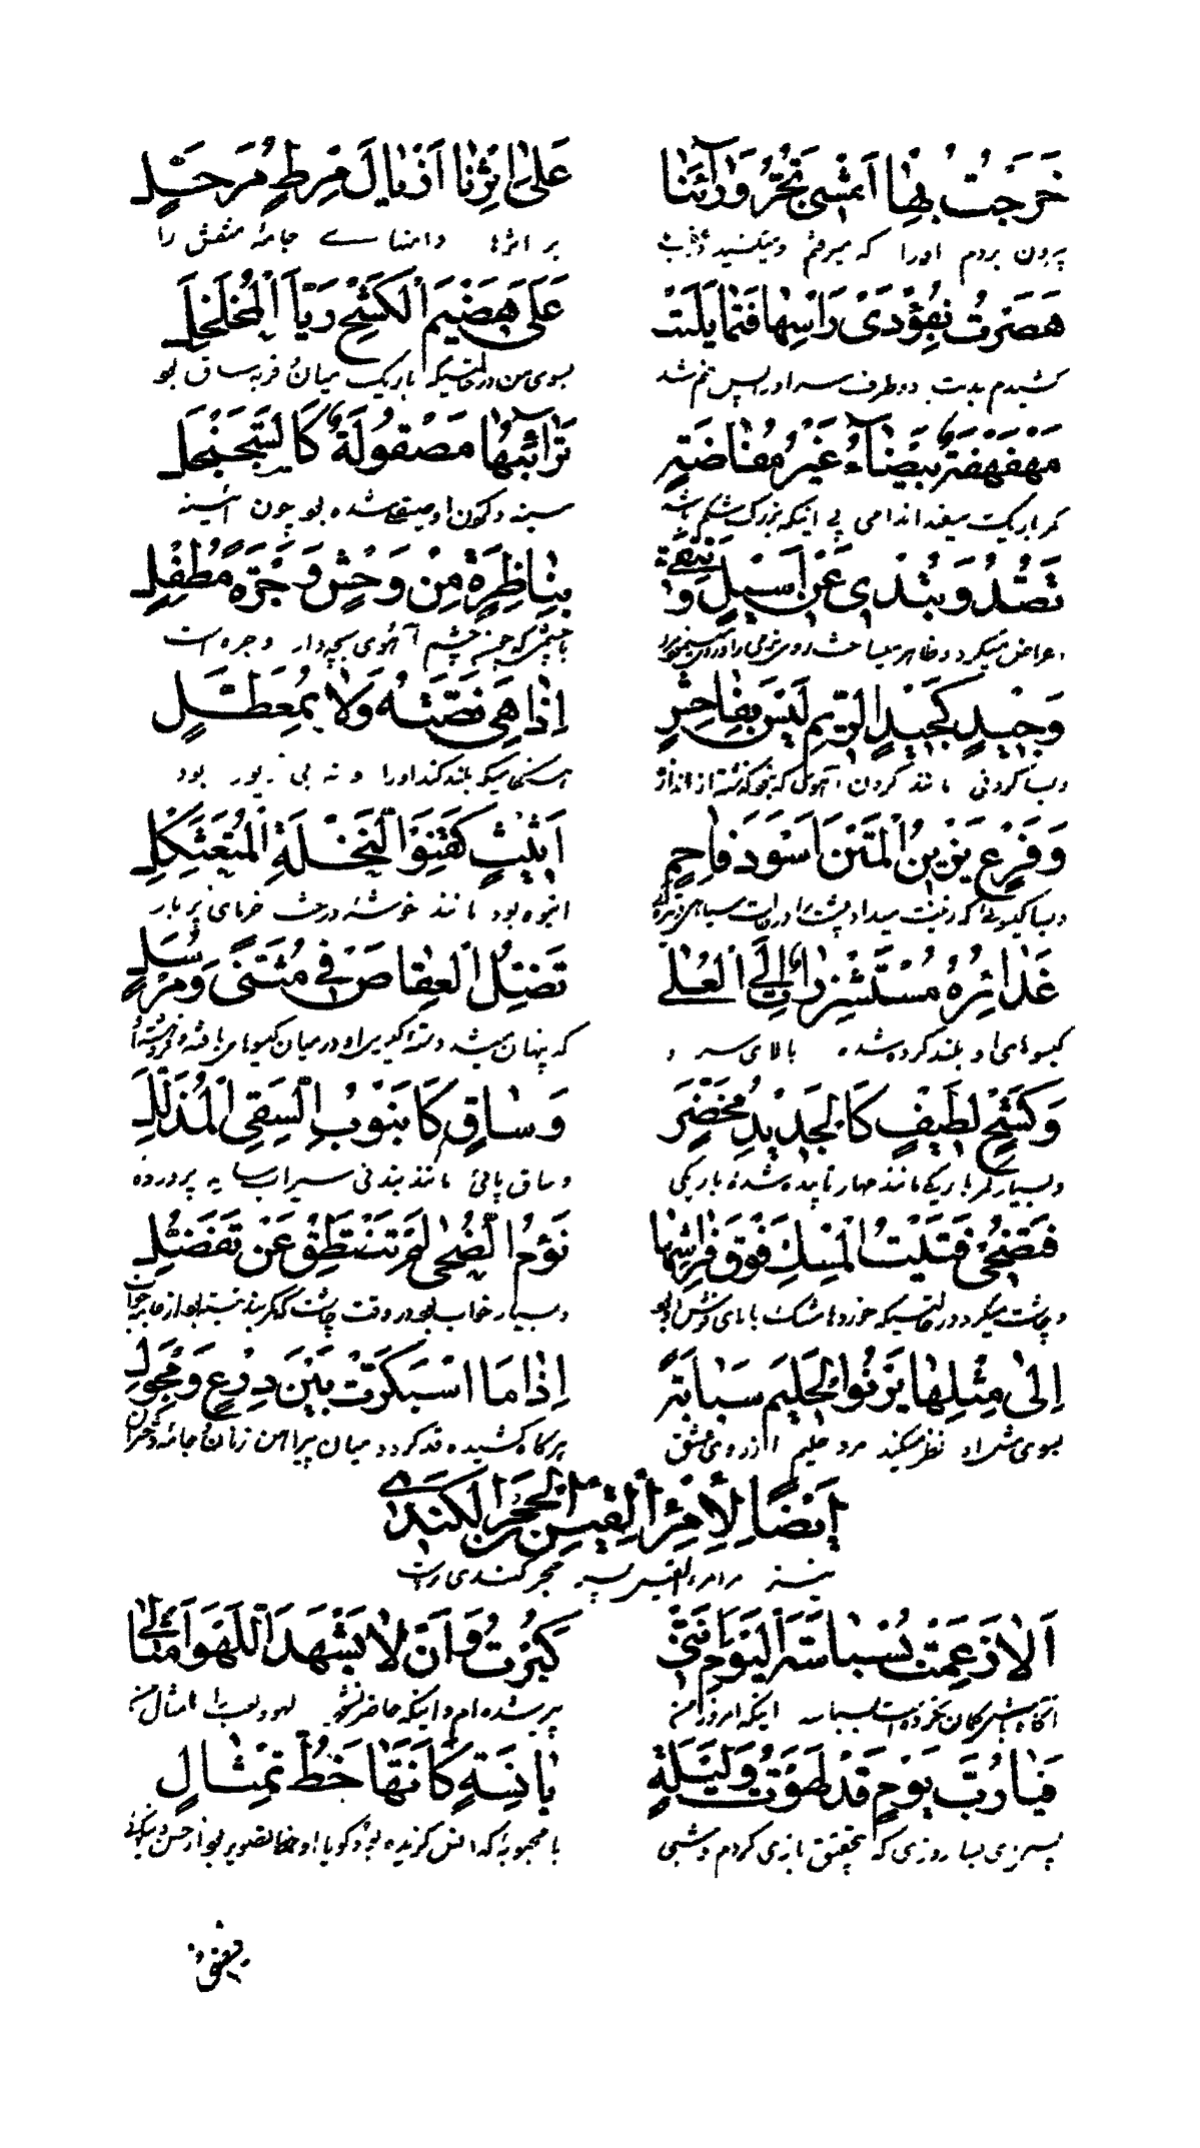 خَرَجْتُ بِهَا اَمْشِي تَجُرُّ وَرَآئَنَا عَلٰی اِثْرِنَا اَذْيَالَ مِرْطٍ مُرَحَّلٍ
بیرون بردم اورا که میرفتم و میکشید بر اثرها دامنهاے جامهٔ منقش را
هَصَرْتُ بِفَوْدَیْ رَاْسِهَا فَتَمَايَلَتْ عَلَیَّ هَضِيْمَ الْكَشْحِ رَيَّا الْمُخَلْخَلِ
کشیدم بدست دو طرف سر او را پس خم شد بسوی من در حالتیکه باریک میان فربه ساق بود
مُهَفْهَفَةٌ بَيْضَآءُ غَيْرُ مُفَاضَةٍ تَرَآئِبُهَا مَصْقُوْلَةٌ كَالسَّجَنْجَلِ
کمر باریک سفید اندامی بی اینکه بزرگ شکم باشد سینه صیقل شده بود چون آئینه
تَصُدُّ وَتُبْدِی عَنْ اَسِيْلٍ وَتَتَّقِی بِنَاظِرَةٍ مِنْ وَحْشِ وَجْرَةَ مُطْفِلٍ
اعراض میکرد و ظاهر میساخت چشم آهوی بچه دار وجره است
وَجِيْدٍ كَجِيْدِ الرِّيْمِ لَيْسَ بِفَاحِشٍ اِذَا هِیَ نَصَّتْهُ وَلَا بِمُعَطَّلٍ
و بسا گردنی مانند گردن آهوی که نبود گذشته از اندازه هنگامیکه بلند کند اورا و نه بی زیور بود
وَفَرْعٍ يَزِيْنُ الْمَتْنَ اَسْوَدَ فَاحِمٍ اَثِيْثٍ كَقِنْوِ النَّخْلَةِ الْمُتَعَثْكِلِ
و بسا گیسوئی که زینت میداد پشت را انبوه بود مانند خوشهٔ درخت خرمای پر بار
غَدَائِرُهُ مُسْتَشْزِرَاتٌ اِلَی الْعُلٰے تَضِلُّ الْعِقَاصُ فِی مُثَنًّی وَمُرْسَلٍ
گیسوهای او بلند کرده شده بالای سر و که پنهان میشد در میان گیسوها
وَكَشْحٍ لَطِيْفٍ كَالْجَدِيْلِ مُخَصَّرٍ وَسَاقٍ كَاُنْبُوْبِ السَّقِیِّ الْمُذَلَّلِ
و بسیار کمر باریکی مانند مهار تابیده شده باریکی و ساق پائی مانند بند نی سیراب پرورده
فَتُضْحِی فَتِيْتُ الْمِسْكِ فَوْقَ فِرَاشِهَا نَؤُمُ الضُّحٰی لَمْ تَنْتَطِقْ عَنْ تَفَضُّلٍ
و چاشت میکرد در حالتیکه خوردهٔ مشک بالای فرش او بود و بسیار خواب بود در وقت چاشت که کمر بند نبسته بود
اِلٰی مِثْلِهَا يَرْنُو الْحَلِيْمُ صَبَابَةً اِذَا مَا اسْبَكَرَّتْ بَيْنَ دِرْعٍ وَمِجْوَلٍ
بسوی مثل او نظر میکند مرد حلیم از روی عشق هرگاه کشیده قد گردد میان پیراهن زنان و جامهٔ دختران
اَيْضًا لِاِمْرِءِ الْقَيْسِ الْحُجْرِ الْكِنْدِیْ
نیز مر امرء القیس پسر حجر کندی راست
اَلَا زَعَمَتْ بَسْبَاسَةُ الْيَوْمَ اَنَّنِیْ كَبُرْتُ وَاَنْ لَا يَشْهَدَ اللَّهْوَ اَمْثَالِیْ
آگاه باش گمان کرده است بسباسه اینکه امروز من پیر شده ام و اینکه حاضر نشود لهو و لعب را امثال من
فَيَا رُبَّ يَوْمٍ قَدْ لَهَوْتُ وَلَيْلَةٍ بِاٰنِسَةٍ كَاَنَّهَا خَطُّ تِمْثَالٍ
بسا روزی که بتحقیق بازی کردم و شبی با محبوبهٔ که انس گزیده بود گویا او خط تصویر بود